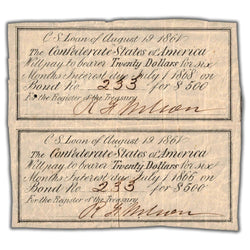 C.S. Loan of August 19 1861
The Confederate States of America
Will pay to bearer Twenty Dollars for six
Months Interest due July 1 1868 on
Bond No. 233 for $500
For the Register of the Treasury
C.S. Loan of August 19 1861
The Confederate States of America
Will pay to bearer Twenty Dollars for six
Months Interest due July 1 1866 on
Bond No. 233 for $500
For the Register of the Treasury